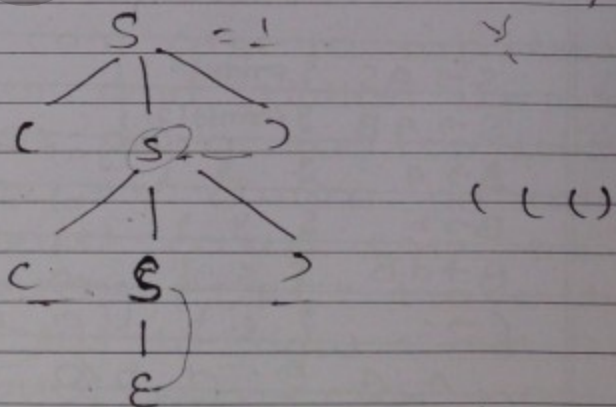 S = 1
( S )
( ( ()
( S )
ε